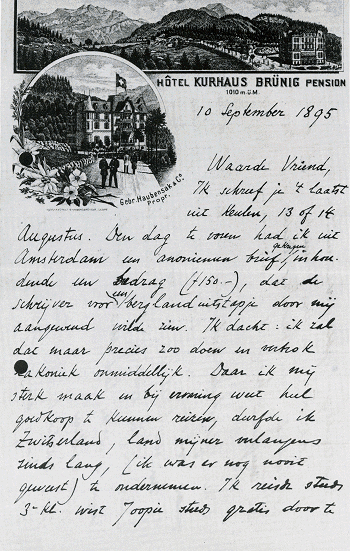 HÔTEL KURHAUS BRÜNIG PENSION
1010 m.ü.M.
Gebr. Haubensak & Cº
Propr.
10 September 1895
Waarde Vriend,
Ik schreef je 't laatst
uit Keulen, 13 of 14
Augustus. Den dag te voren had ik uit
Amsterdam een anoniemen brief gekregen, inhou-
dende een bedrag (f 150.–), dat de
schrijver voor een berglanduitstapje door mij
aangewend wilde zien. Ik dacht: ik zal
dat maar precies zoo doen en vertrok
lakoniek onmiddellijk. Daar ik mij
sterk maak en bij ervaring weet heel
goedkoop te kunnen reizen, durfde ik
Zwitserland, land mijner verlangens
sinds lang, (ik was er nog nooit
geweest) te ondernemen. Ik reisde steeds
3e kl. wist Joopie steeds gratis door te